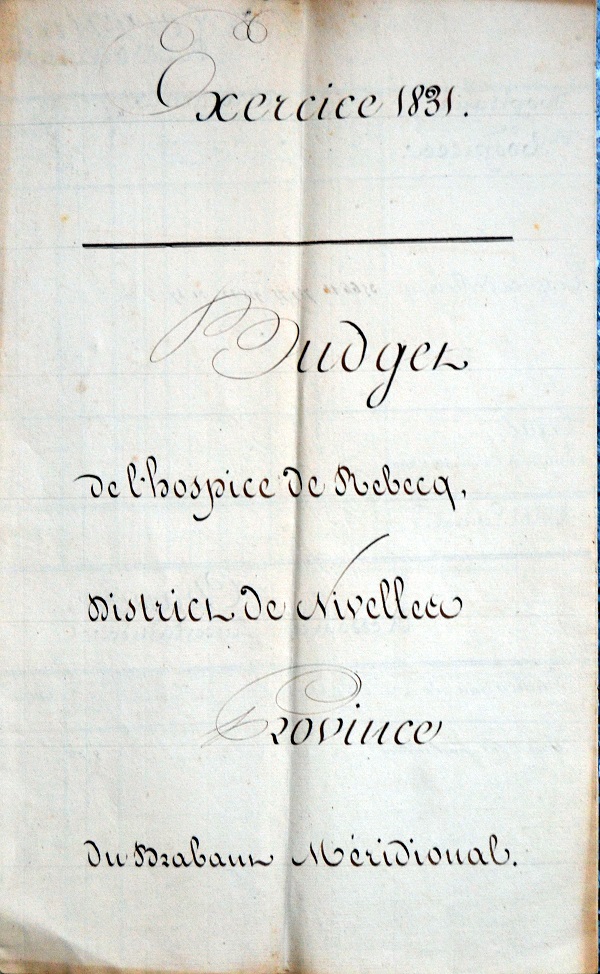 Exercice 1831.
Budget
de l'hospice de Rebecq,
District de Nivelles
Province
du Brabant Méridional.